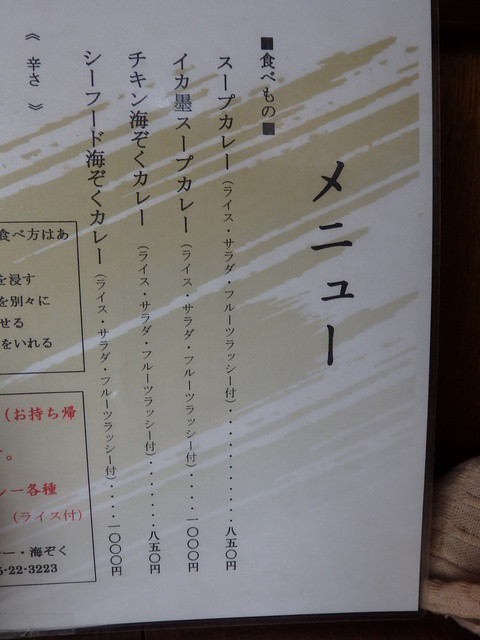 メニュー
■食べもの■
スープカレー(ライス・サラダ・フルーツラッシー付)・・・・・・・・・・・八五〇円
イカ墨スープカレー(ライス・サラダ・フルーツラッシー付)・・・・一〇〇〇円
チキン海ぞくカレー(ライス・サラダ・フルーツラッシー付)・・・・・・八五〇円
シーフード海ぞくカレー(ライス・サラダ・フルーツラッシー付)・・・・一〇〇〇円
《辛さ》
食べ方はあ
を浸す
を別々に
せる
をいれる
(お持ち帰
す。
レー各種
(ライス付)
ー・海ぞく
5-22-3223